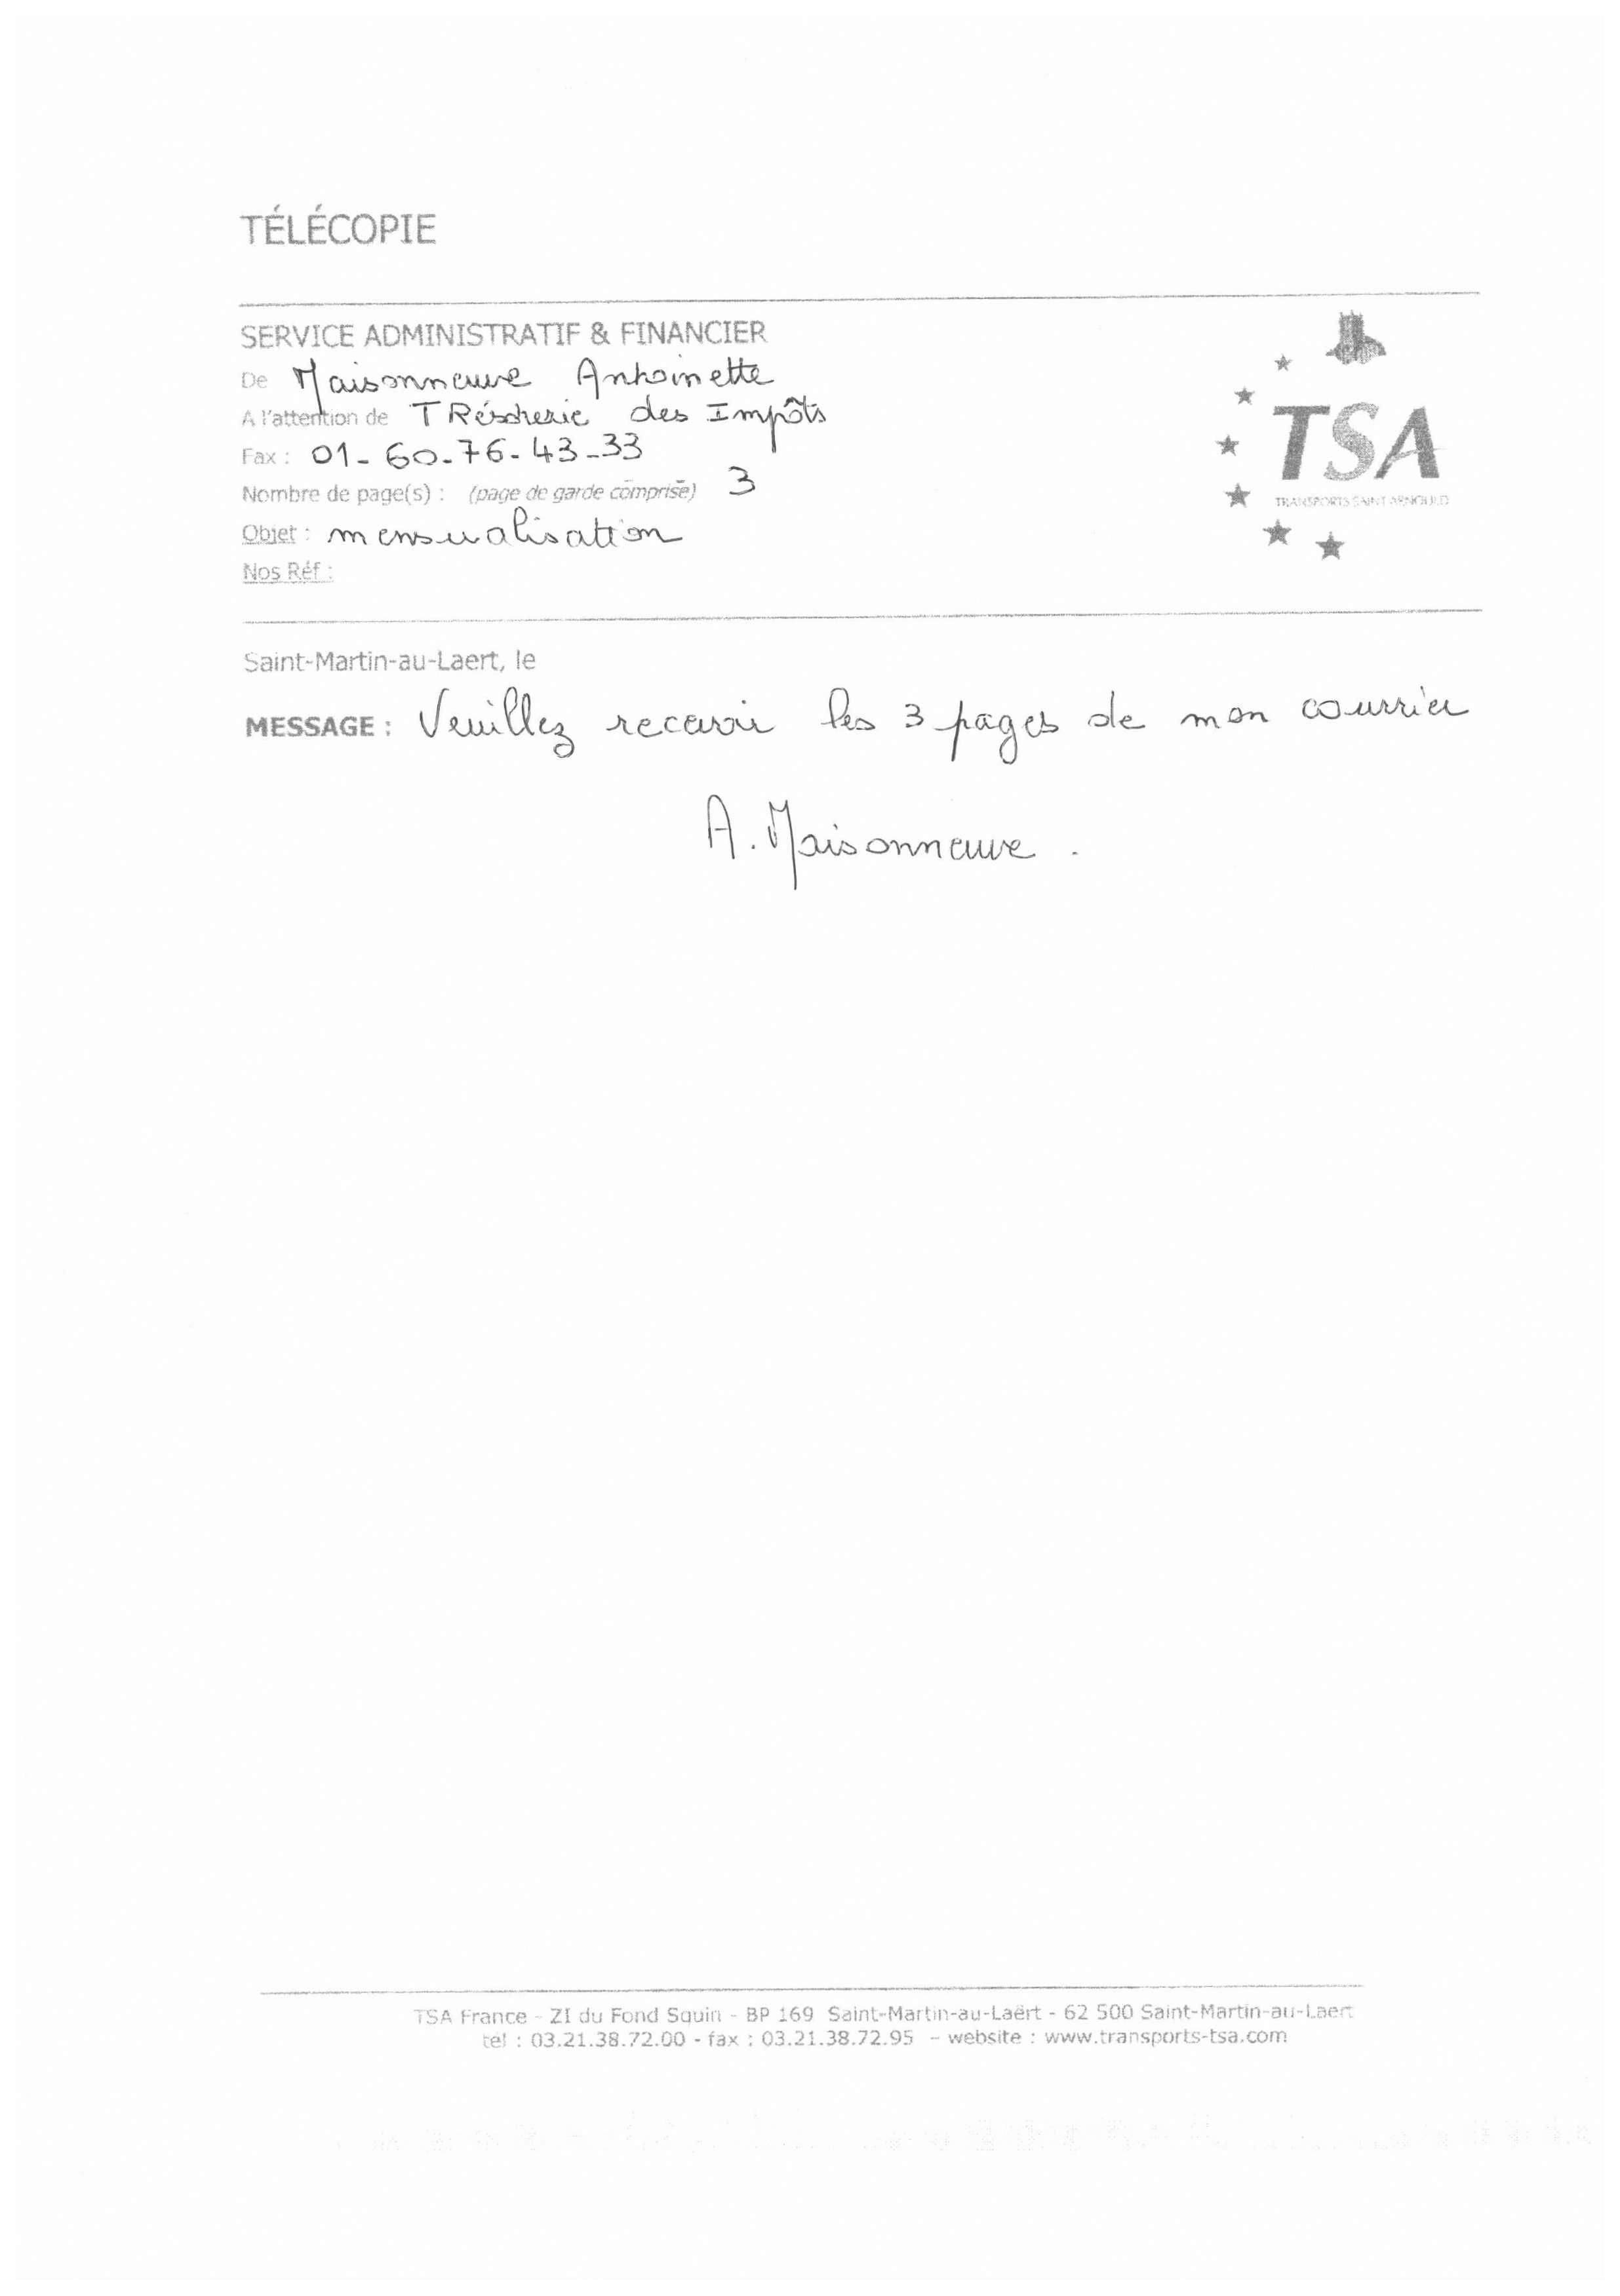 TÉLÉCOPIE
SERVICE ADMINISTRATIF & FINANCIER
De Maisonneuve Antoinette
A l'attention de TRésorerie des Impôts
Fax : 01-60-76-43-33
Nombre de page(s) : (page de garde comprise) 3
Objet : mensualisation
Nos Réf :
TSA
TRANSPORTS SAINT ARNOULD
Saint-Martin-au-Laert, le
MESSAGE : Veuillez recevoir les 3 pages de mon courrier
A. Maisonneuve.
TSA France - ZI du Fond Squin - BP 169 Saint-Martin-au-Laërt - 62 500 Saint-Martin-au-Laert
tel : 03.21.38.72.00 - fax : 03.21.38.72.95 - website : www.transports-tsa.com